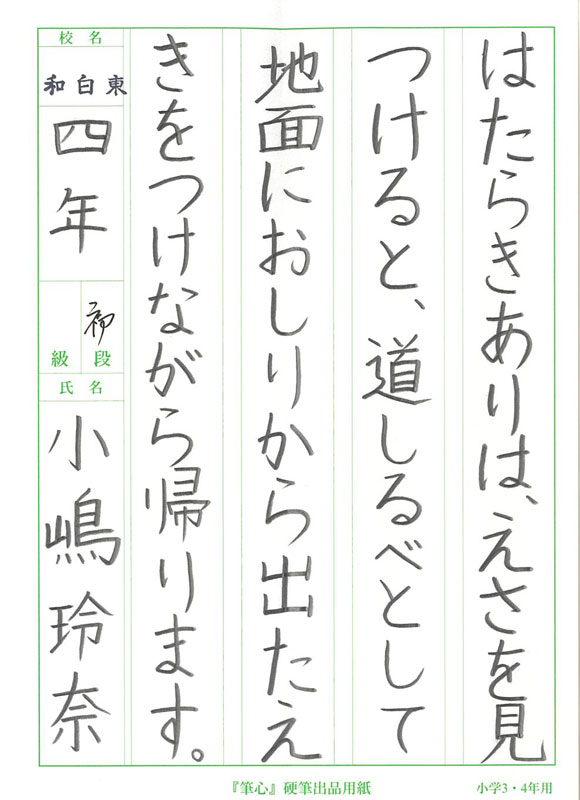 はたらきありは、えさを見
つけると、道しるべとして
地面におしりから出たえ
きをつけながら帰ります。
校名
和白東
四年
初段
級
氏名
小嶋玲奈
『筆心』硬筆出品用紙
小学3・4年用